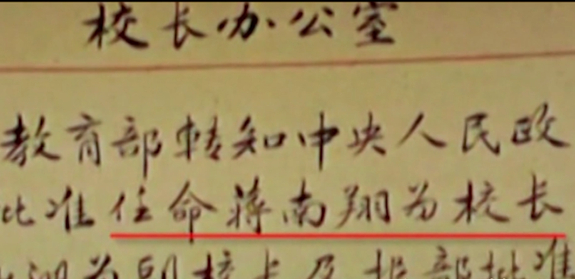 校长办公室
教育部转知中央人民政
批准任命蒋南翔为校长
为副校长及